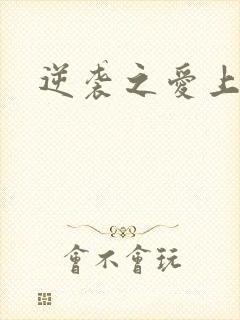 逆袭之愛上
會不會玩